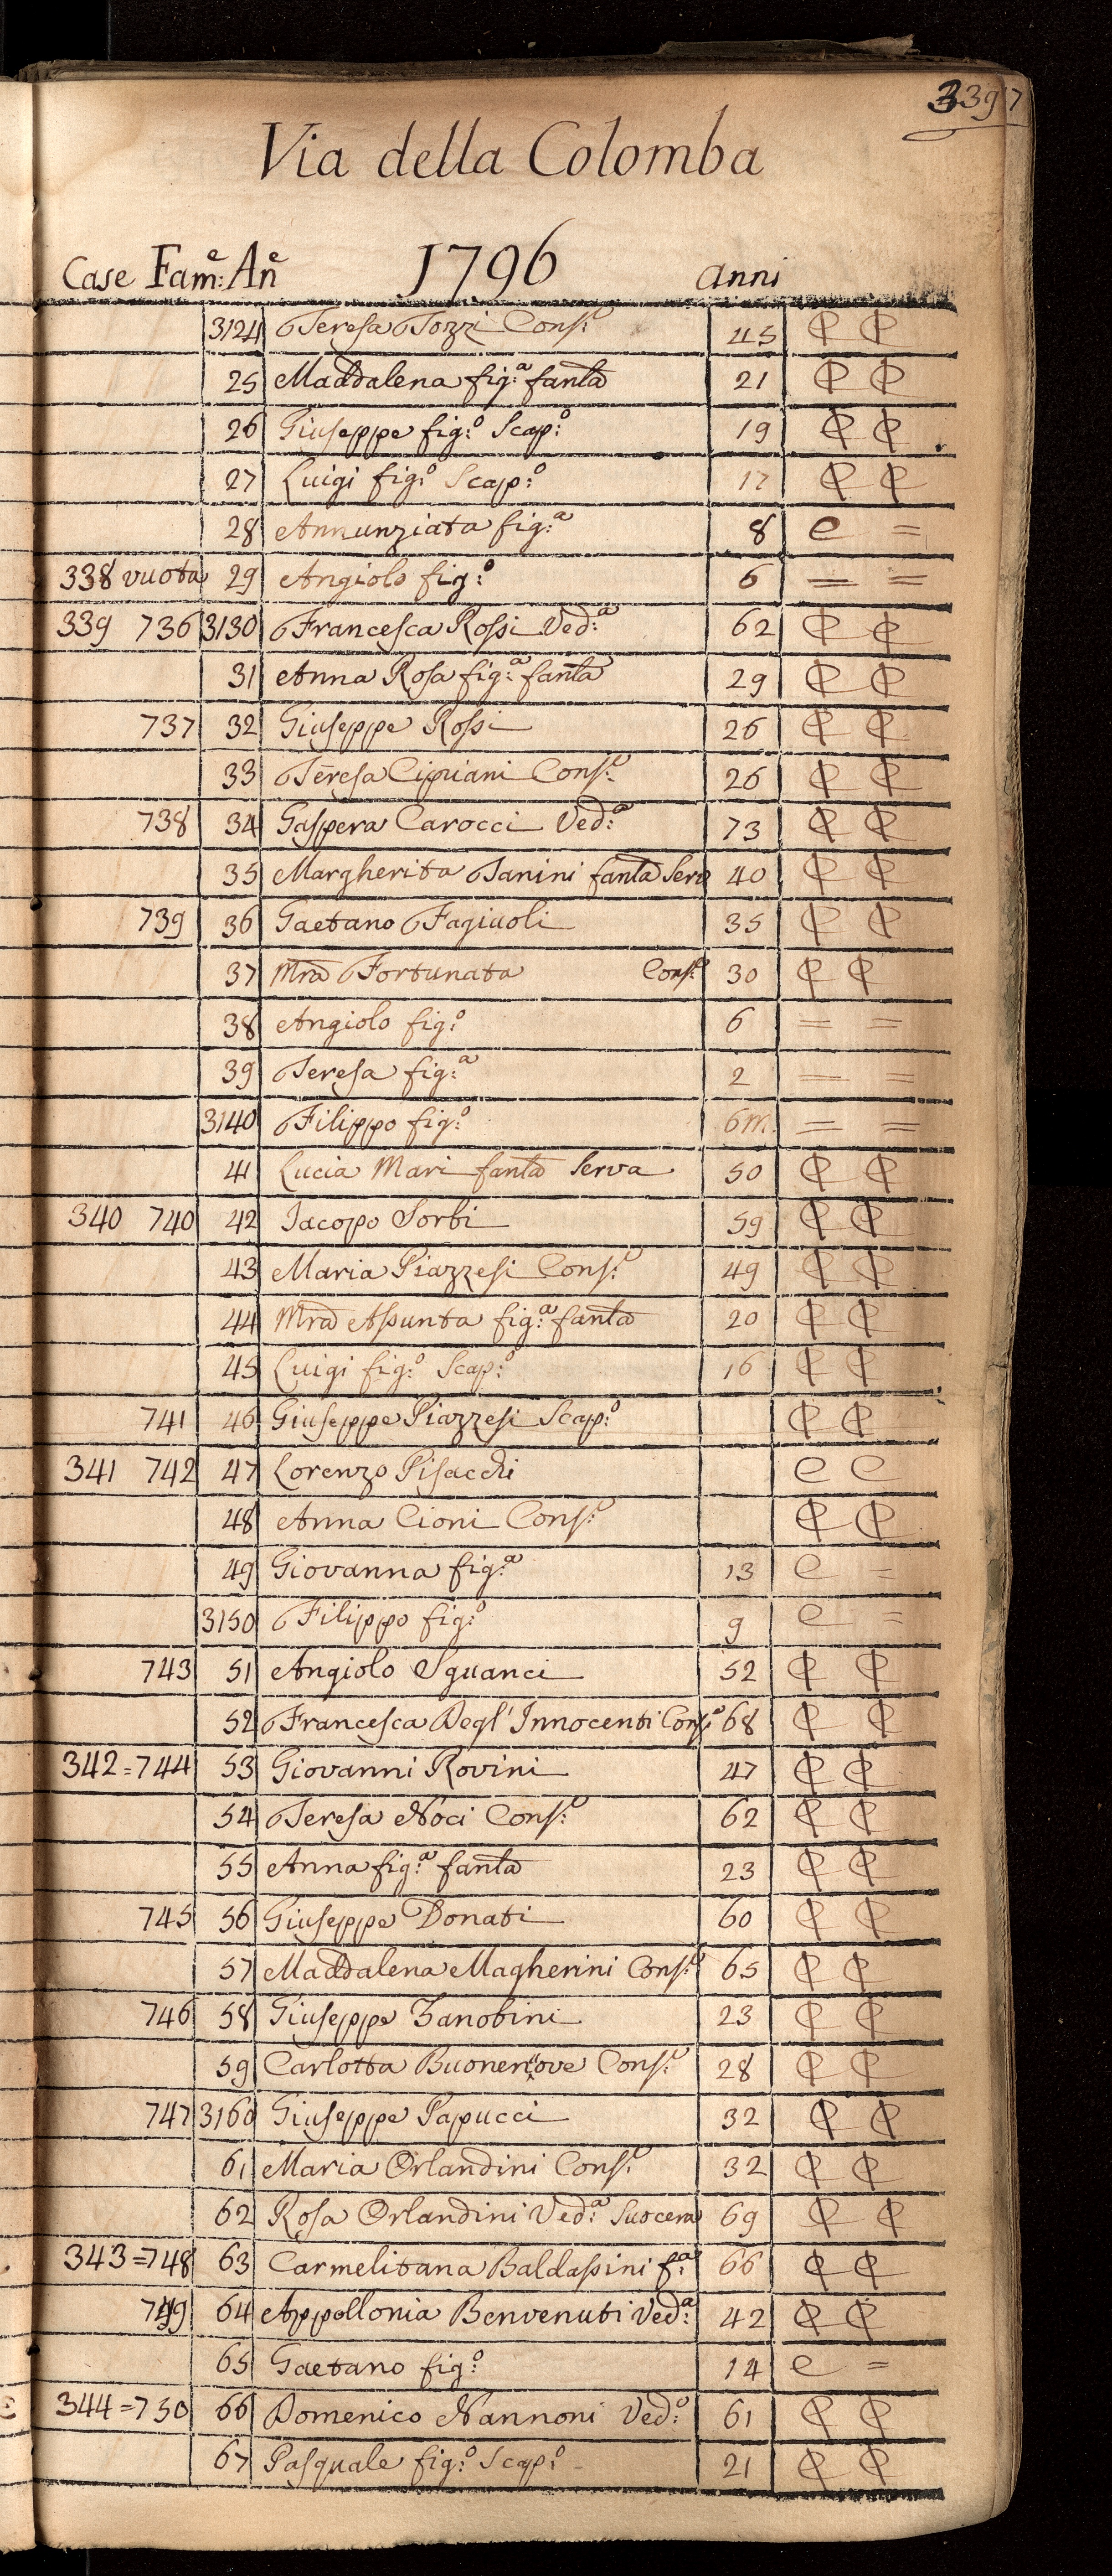 3397
Via della Colomba
Case Fam:e An.e 1796 anni
3124 Teresa Tozzi Cons:e 45 C C
25 Maddalena fig:a fanla 21 C C
26 Giuseppe fig:o Scap:o 19 C C
27 Luigi fig:o Scap:o 17 C C
28 Annunziata fig:a 8 C =
338 vuota 29 Angiolo fig:o 6 = =
339 736 3130 Francesca Rossi Ved:a 62 C C
31 Anna Rosa fig:a fanla 29 C C
737 32 Giuseppe Rossi 26 C C
33 Teresa Cipriani Cons:e 26 C C
738 34 Gaspera Carocci Ved:a 73 C C
35 Margherita Tanini fanla Serva 40 C C
739 36 Gaetano Fagiuoli 35 C C
37 Mra Fortunata Cons:e 30 C C
38 Angiolo fig:o 6 = =
39 Teresa fig:a 2 = =
3140 Filippo fig:o 6m. = =
41 Lucia Mari fanla Serva 50 C C
340 740 42 Jacopo Sorbi 59 C C
43 Maria Piazzesi Cons:e 49 C C
44 Mra Assunta fig:a fanla 20 C C
45 Luigi fig:o Scap:o 16 C C
741 46 Giuseppe Piazzesi Scap:o C C
341 742 47 Lorenzo Pisacchi C C
48 Anna Cioni Cons:e C C
49 Giovanna fig:a 13 C =
3150 Filippo fig:o 9 C =
743 51 Angiolo Sguanci 52 C C
52 Francesca Degl' Innocenti Cons:e 68 C C
342=744 53 Giovanni Rovini 47 C C
54 Teresa Noci Cons:e 62 C C
55 Anna fig:a fanla 23 C C
745 56 Giuseppe Donati 60 C C
57 Maddalena Magherini Cons:e 65 C C
746 58 Giuseppe Zanobini 23 C C
59 Carlotta Cons:e 28 C C
747 3160 Giuseppe Papucci 32 C C
61 Maria Orlandini Cons:e 32 C C
62 Rosa Orlandini Ved:a Suocera 69 C C
343=748 63 Carmelitana Baldassini f:a 66 C C
749 64 Appollonia Benvenuti Ved:a 42 C C
65 Gaetano fig:o 14 C =
344=750 66 Domenico Nannoni Ved:o 61 C C
67 Pasquale fig:o Scap:o 21 C C